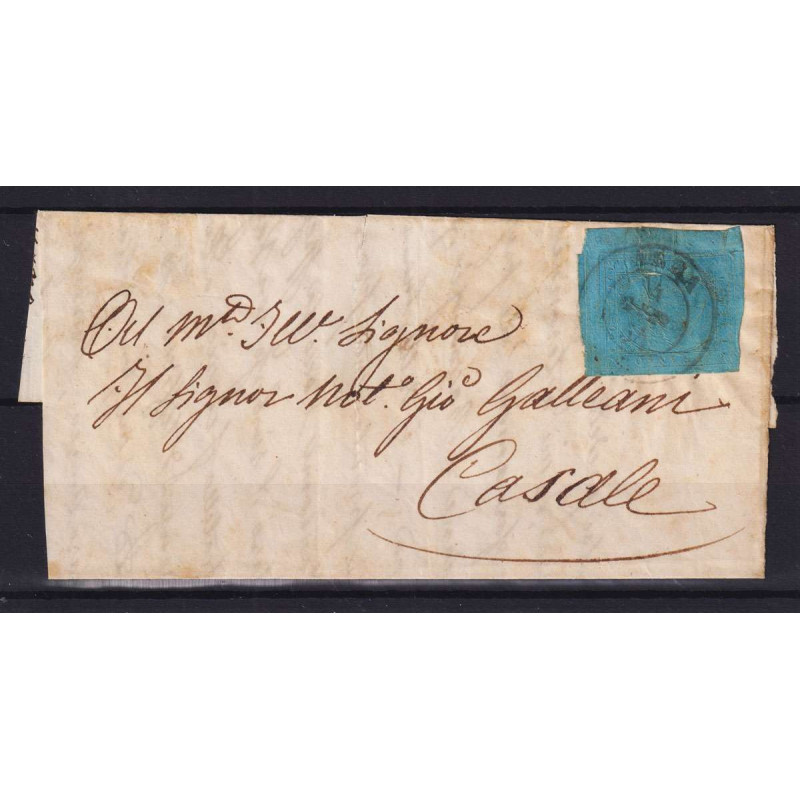 Al M.to Ill. Signore
Il Signor Not.o Gio Galleani
Casale